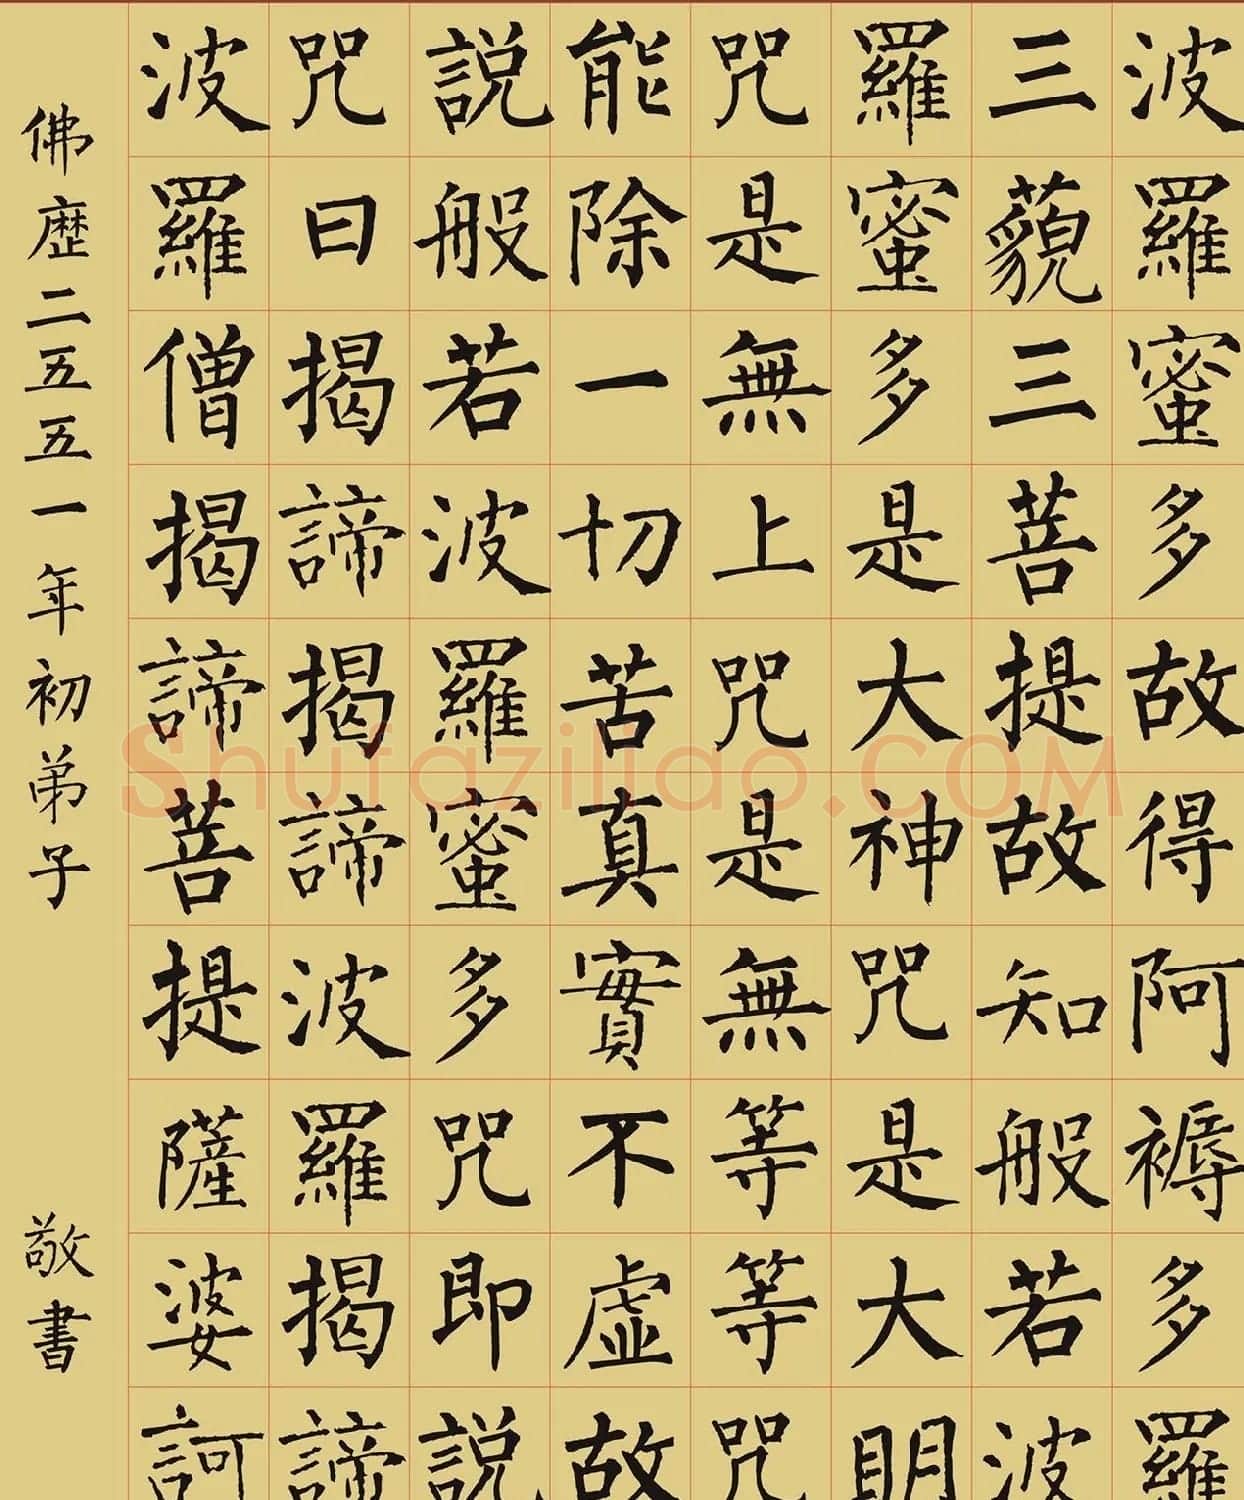 波羅蜜多故得阿褥多羅
三藐三菩提故知般若波
羅蜜多是大神咒是大明
咒是無上咒是無等等咒
能除一切苦真實不虛故
説般若波羅蜜多咒即説
咒曰揭諦揭諦波羅揭諦
波羅僧揭諦菩提薩婆訶
佛歷二五五一年初弟子
敬書
Shufaziliao.COM